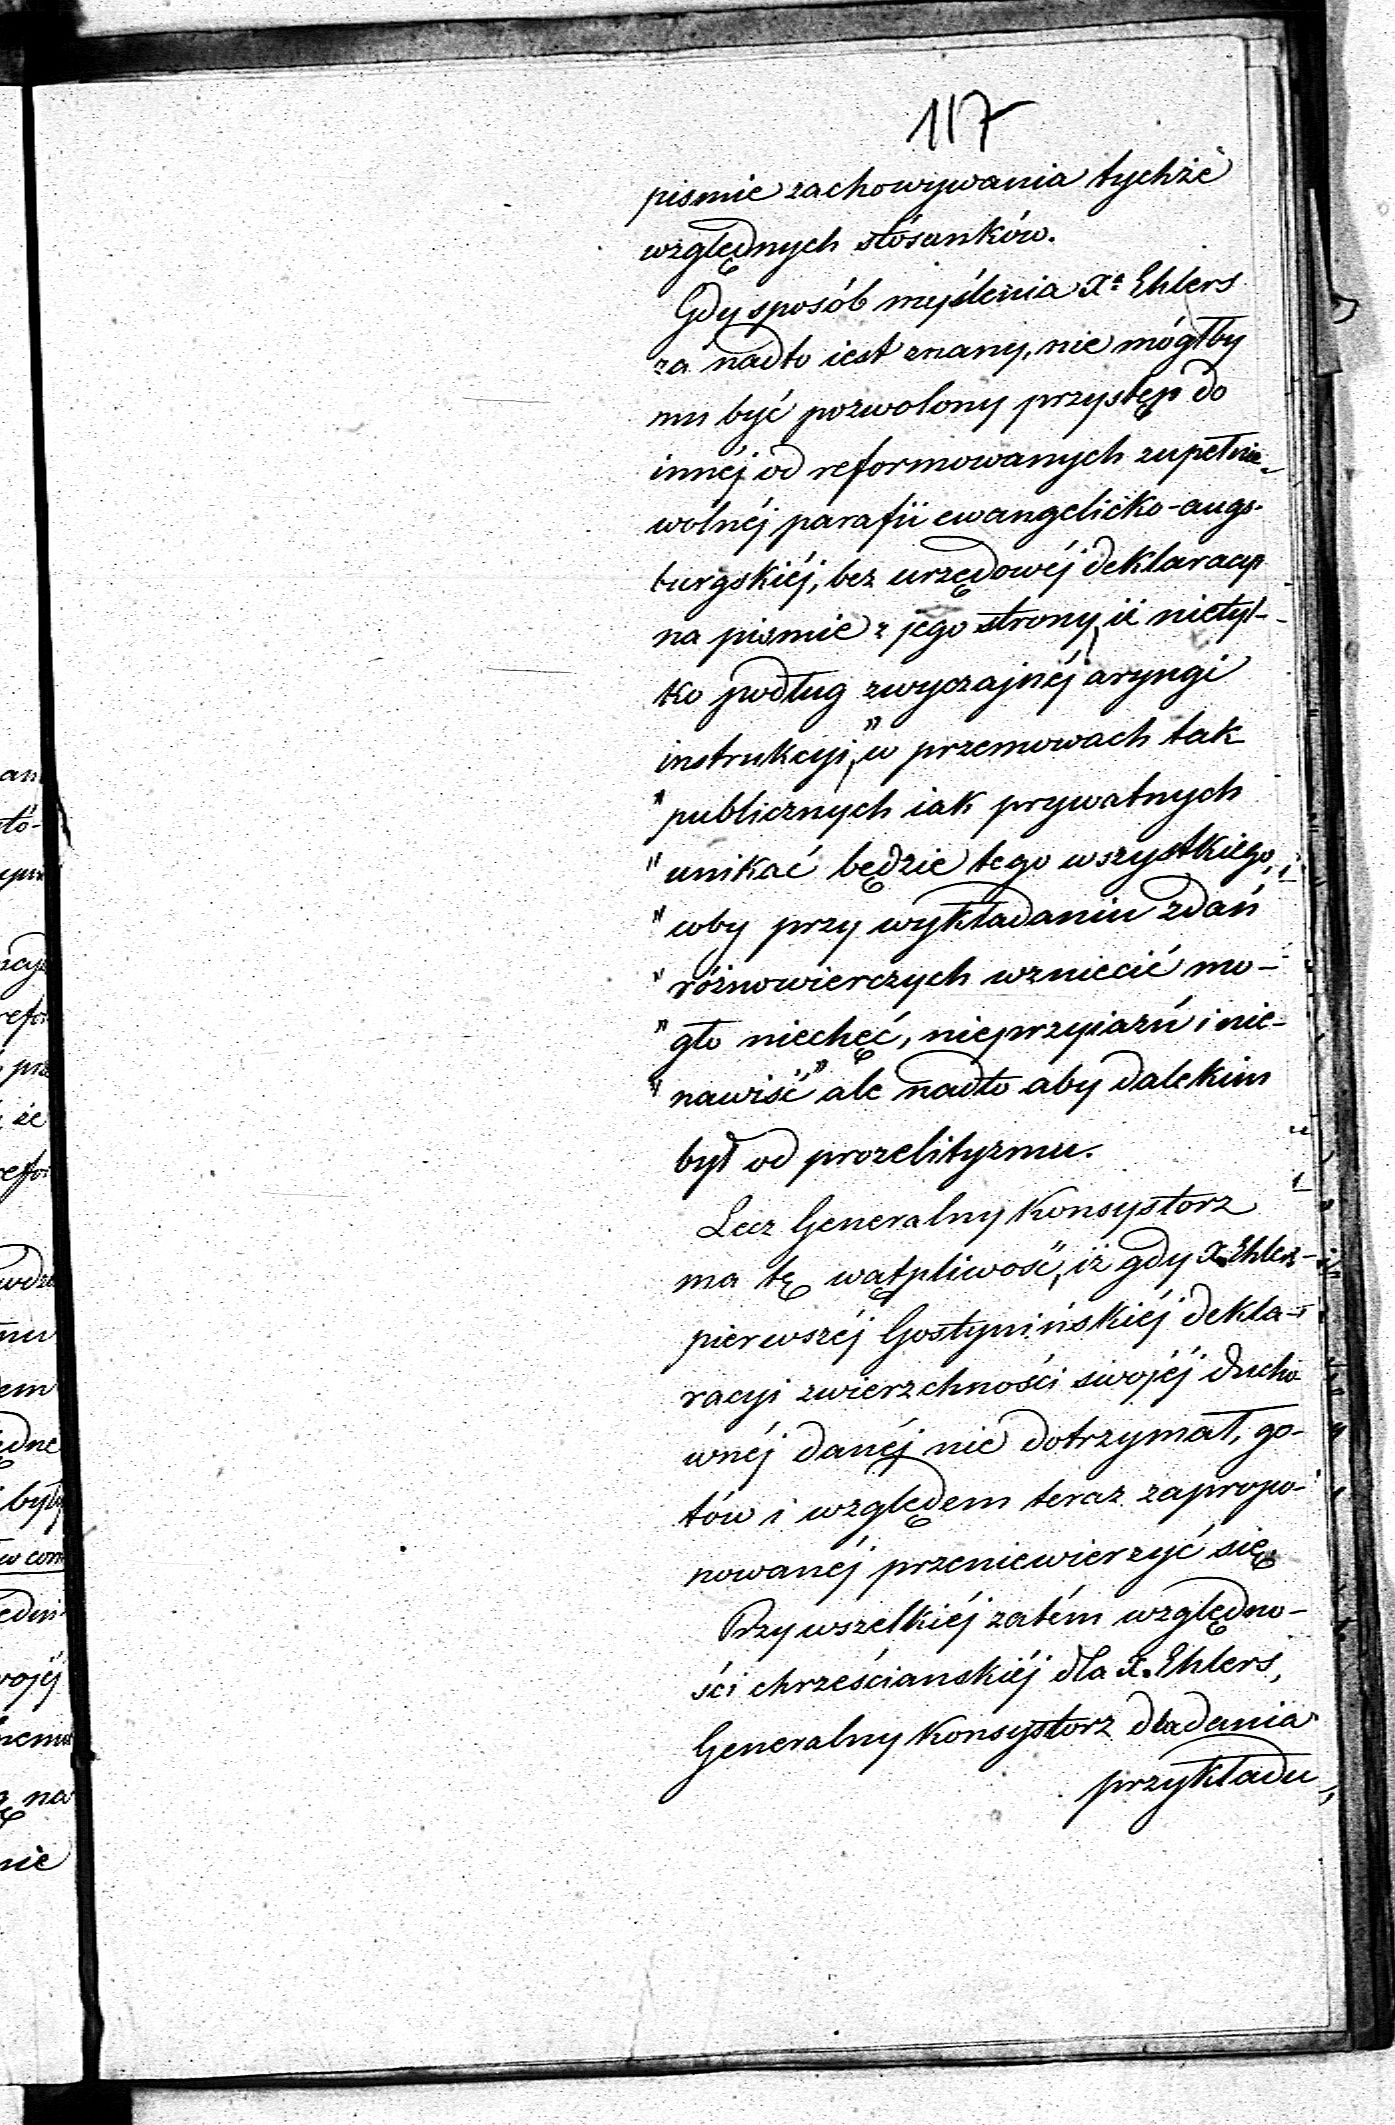 117
pismie zachowywania tychże
względnych stósunków.
Gdy sposób myślenia Xa Ehlers
za nadto iest znany, nie mógłby
mu być pozwolony przystęp do
innéj od reformowanych zupełnie
wolnéj parafii ewangelicko-augs-
burgskiéj, bez urzędowéj deklaracyi
na pismie z jego strony, iż nietyl-
ko podług zwyczajnéj aryngi
instrukcyi, „w przemowach tak
„publicznych iak prywatnych
„unikać będzie tego wszystkiego,
„coby przy wykładaniu zdań
„różnowierczych wzniecić mo-
„gło niechęć, nieprzyiaźń i nie-
„nawiść," ale nadto aby dalekim
był od prozelityzmu.
Lecz Generalny Konsystorz
ma tę wątpliwość, iż gdy X. Ehlers
pierwszéj Gostynińskiéj dekla-
racyi zwierzchności swojéj ducho
wnéj danéj nie dotrzymał, go-
tów i względem teraz zapropo-
nowanéj przeniewierzyć się.
Przy wszelkiéj zatém względno-
ści chrześcianskiéj dla X. Ehlers,
Generalny Konsystorz dla dania
przykładu,